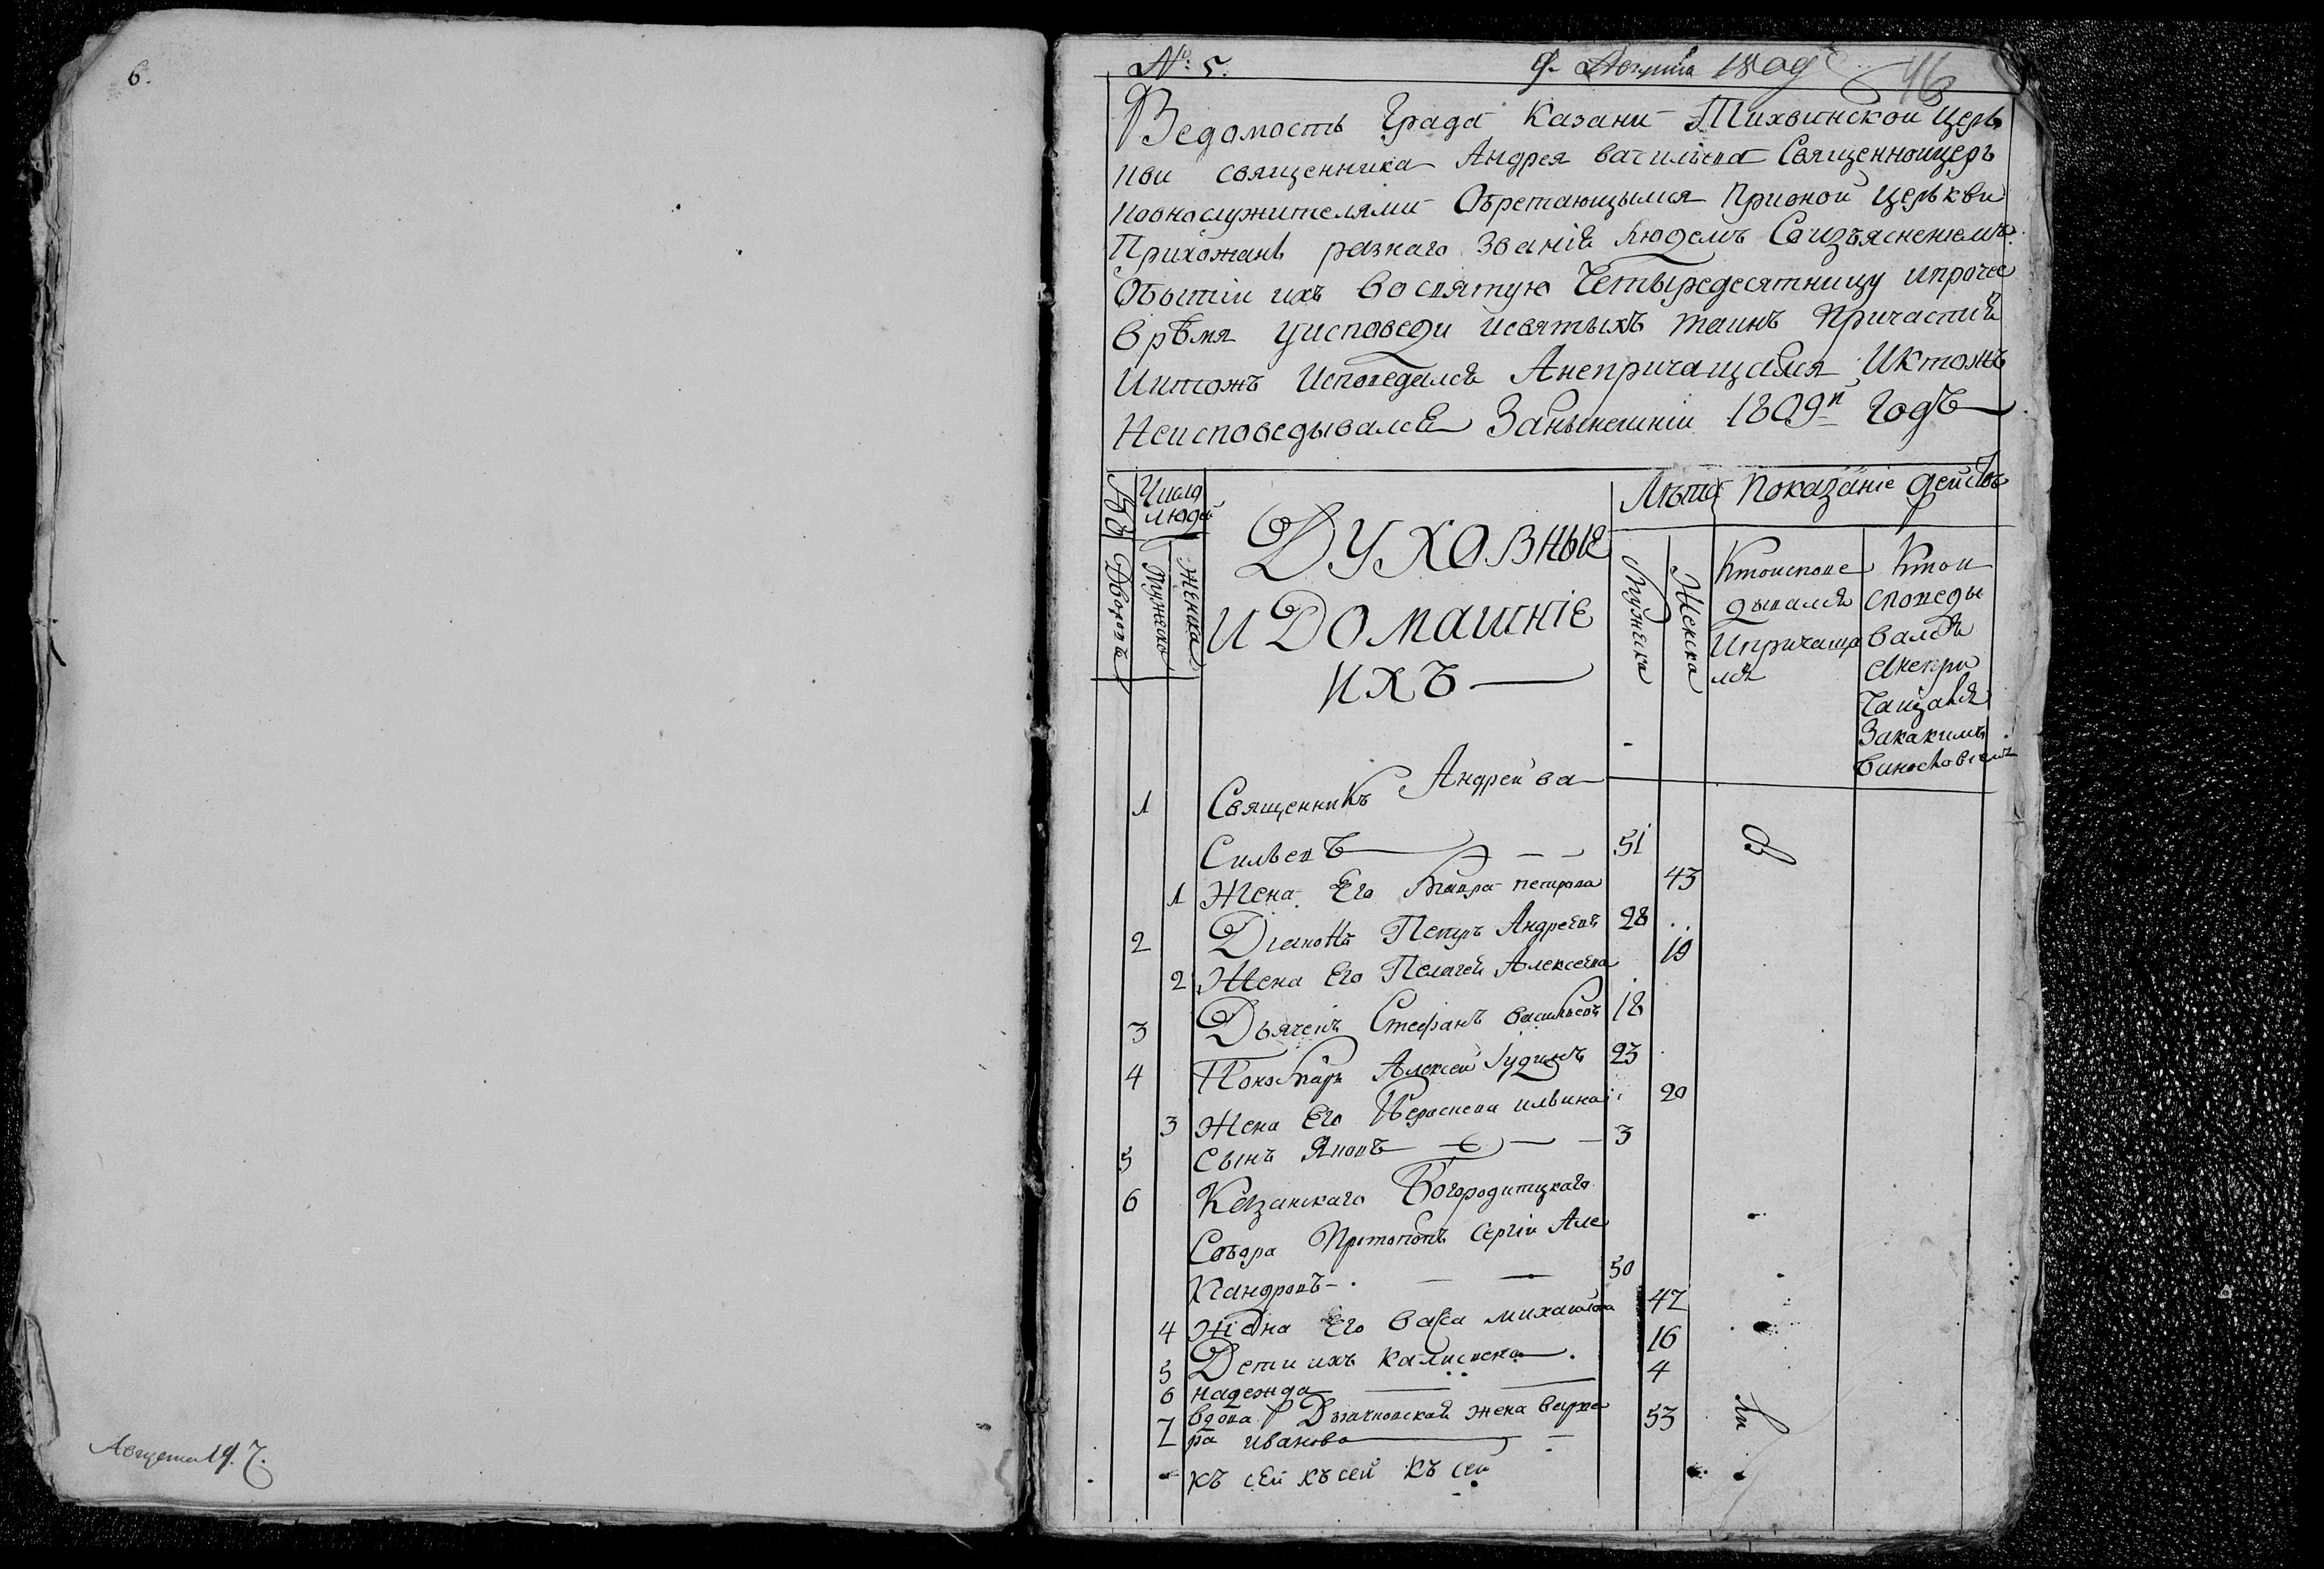 6.
Августа 19. 7.
№: 5.
9. Августа 1809 46
Ведомость Града Казани Тихвинской церь
кви священника Андрея васильева Священноцеръ
ковнослужителями Обретающимися Прионой церькви
Прихожанъ разнаго званія людемъ Соизъясненіемъ
Обытіи ихъ восвятую Четыредесятницу ипрочее
врѣмя уисповеди исвятыхъ таинъ Причастія
Иктожъ Исповедался Анепричащался Иктожъ
Неисповедывался Занынешніи 1809й Годъ
Число людей
Дворовъ
Мужеска
Женска
Духовныя
и Домашніе
ихъ
Лѣта
Мужеска
Женска
Показаніе действъ
Ктоиспове
дывался
Ипричаща
лся
Ктои
споведы
вался
Анепри
чащался
Закакимъ
винословіемъ
1 Священникъ Андрей ва
сильевъ 51
1 Жена Его петрова 43
2 Діаконъ Петръ Андреевъ 28
2 Жена Его Пелагея Алексеева 19
3 Дьячекъ Стефанъ васильевъ 18
4 Пономарь Алексей Іудинъ 23
3 Жена Его ильина 20
5 Сынъ Яковъ 3
6 Казанскаго Богородитцкаго
Собора Протопопъ Сергій Але
ксандровъ 50
4 Жена Его васса михаилова 47
5 Дети ихъ 16
6 надежда 4
7 вдова Дьячковская жена варва
ра иванова 53
къ сей къ сей къ сей